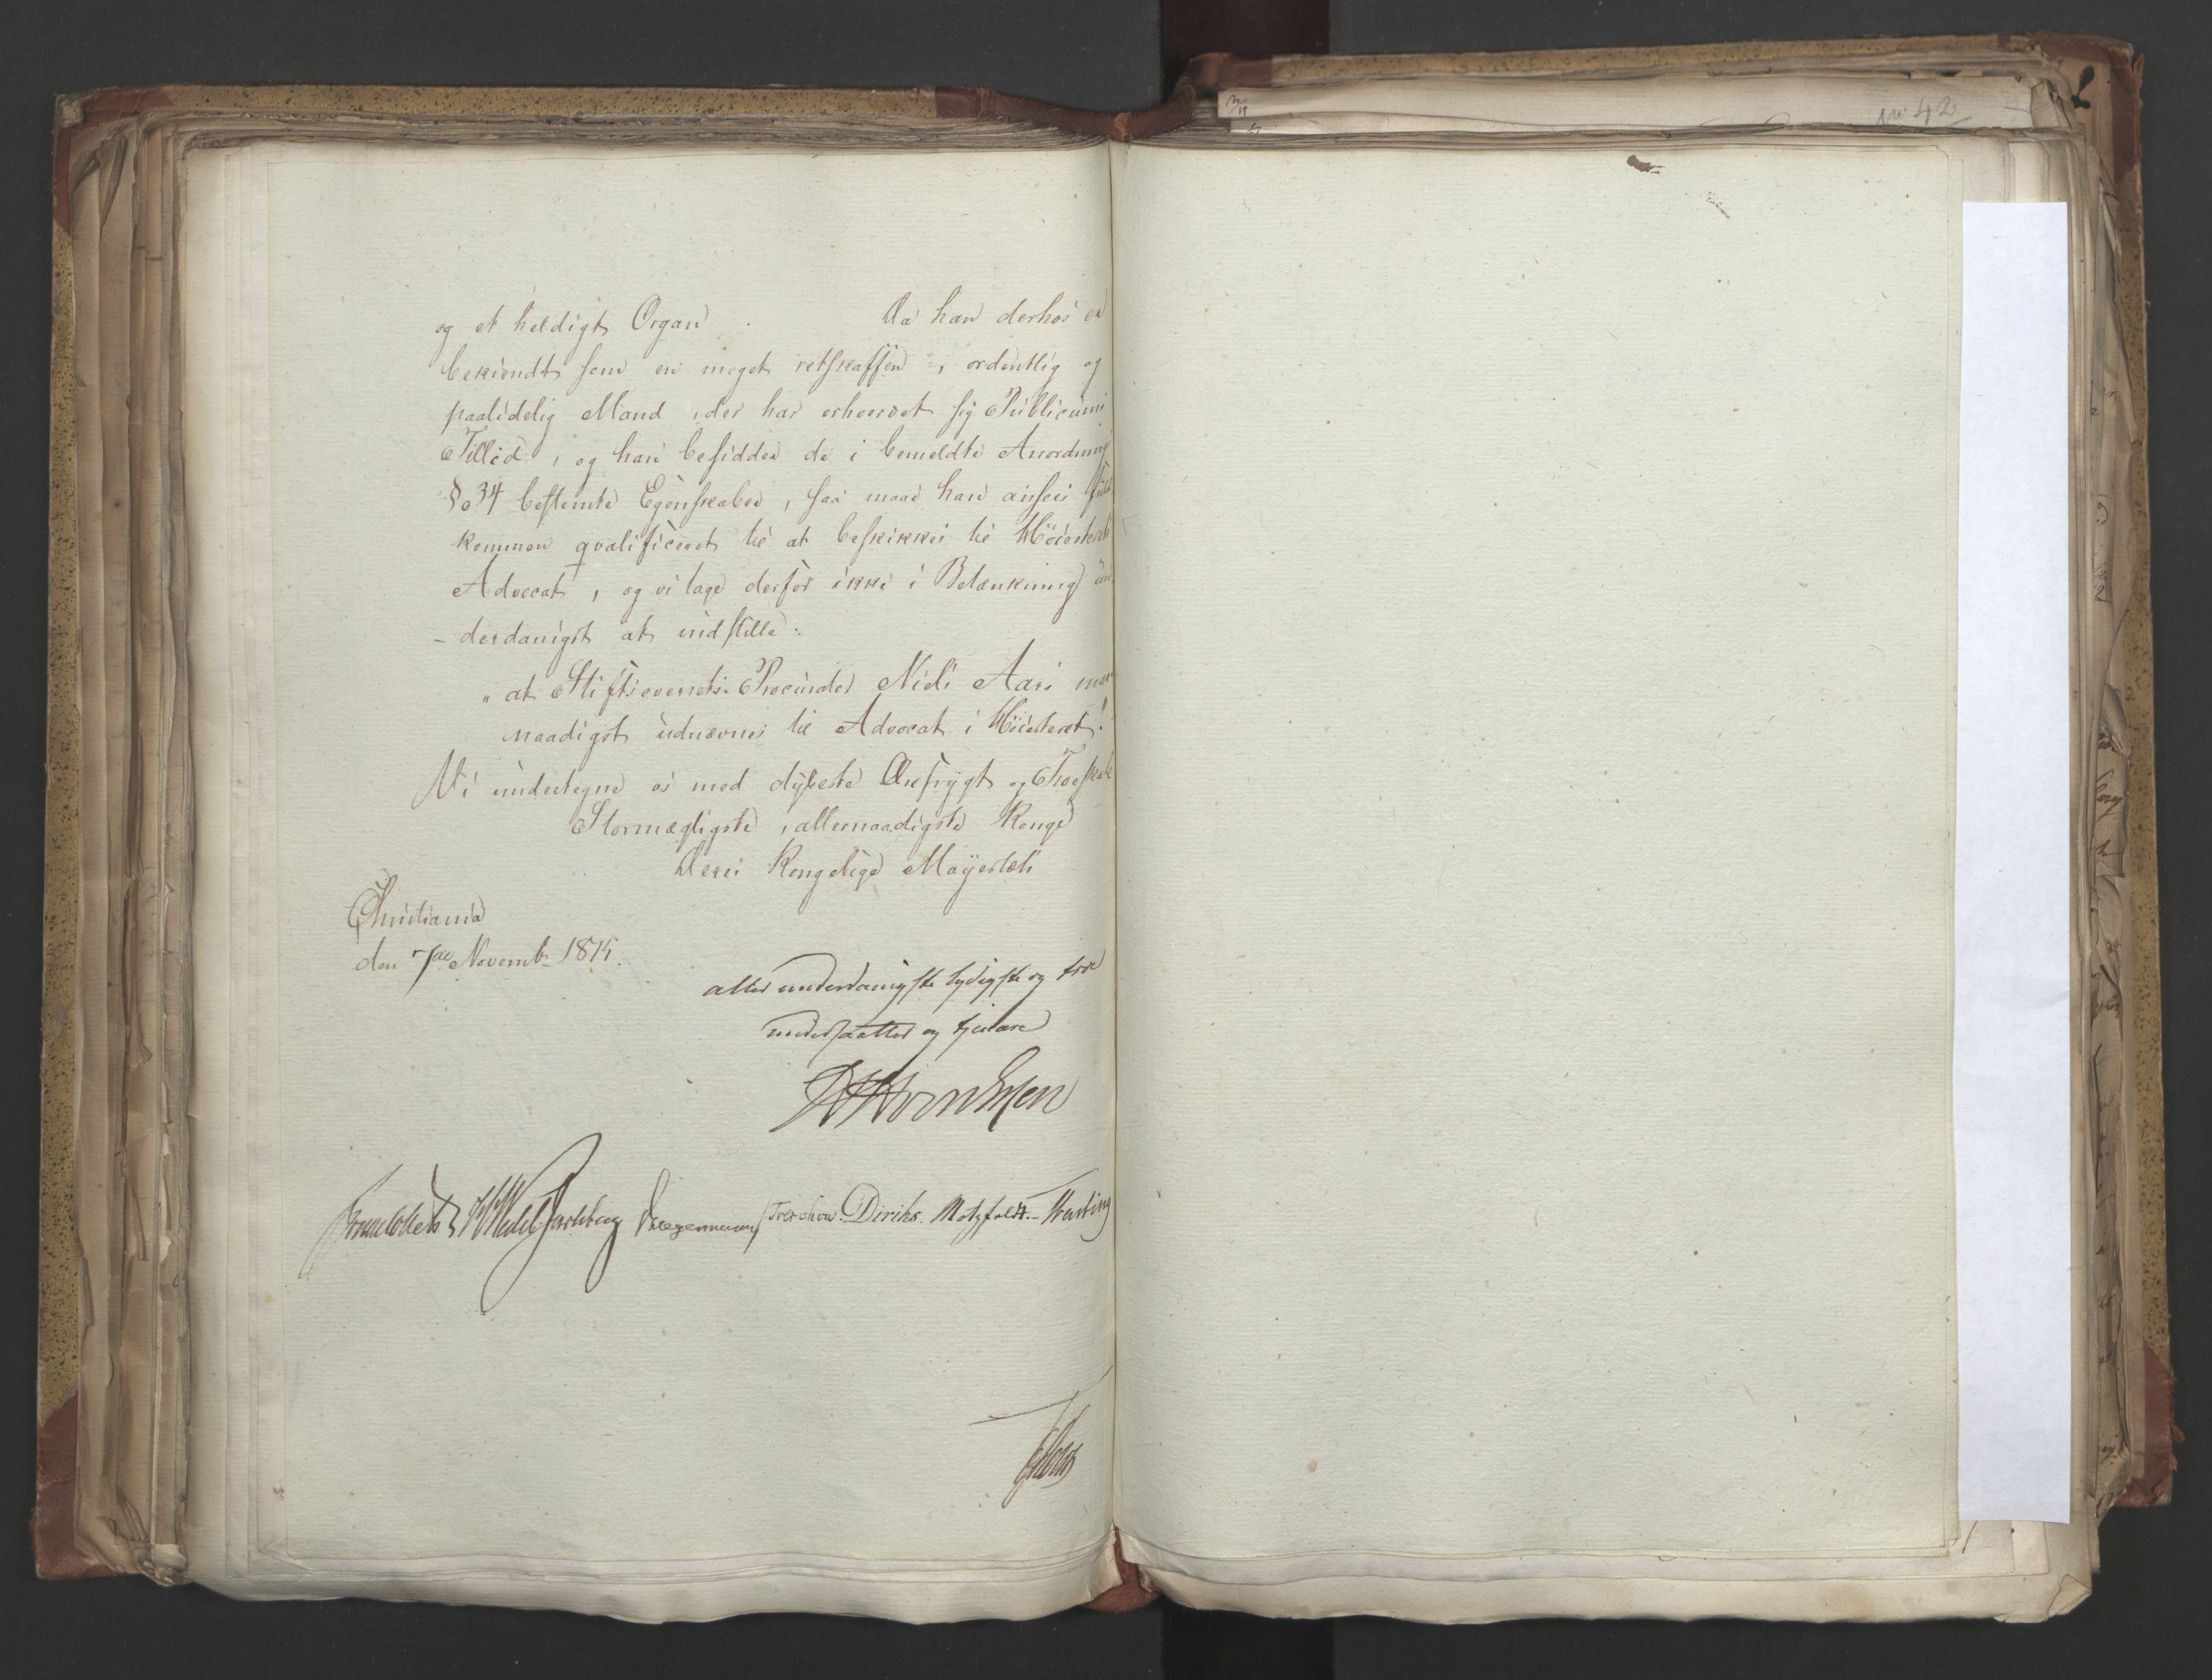 No 42
og et heldigt Organ. Da han derhos er
bekiendt som en meget retskaffen, ordentlig og
paalidelig Mand, der har erhvervet sig Publicums
Tillid, og han besidder de i bemeldte Anordning
§o 34 bestemte Egenskaber, saa maae han ansees fuld
kommen qvalificeret til at beskikkes til Höiesterets
Advocat, og vi tage derfor ikke i Betænkning un
- derdanigst at indstille:
"at Stiftsoverrets-Procurator Niels Aars
naadigst udnævnes til Advocat i Höiesteret!
Vi undertegne os med dybeste Ærefrygt og Troeskab
Stormægtigste, allernaadigste Konge
Deres Kongelige Mayestæts
Christiania
den 7de Novembr 1815.
aller underdanigste lydigste og troe
undersaatter og tjenere
Sommerhielm WWedel Jarlsberg Krogemann Treschow. Diriks. Motzfeldt.